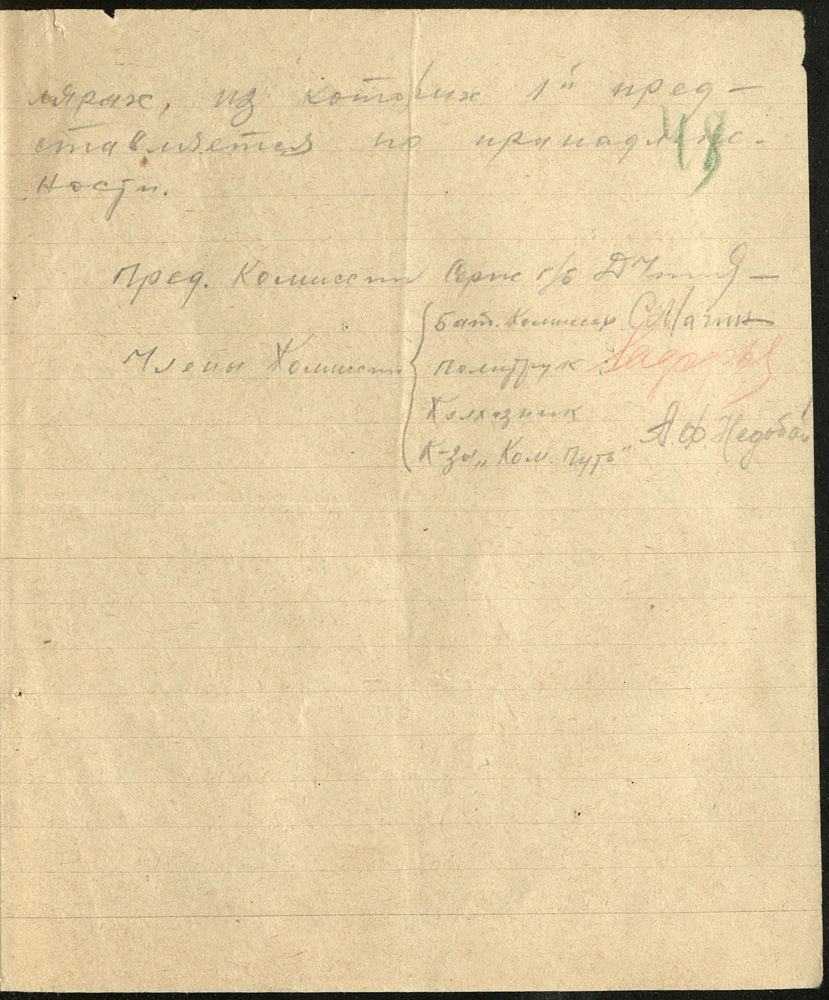 лярах, из которых 1й пред-
48
ставляется по принадлеж-
ности.
Пред. Комиссии Серж г/б
Члены Комиссии
Бат. Комиссар
Политрук
Колхозник
К-за „Ком. Путь" А Ф Недобой